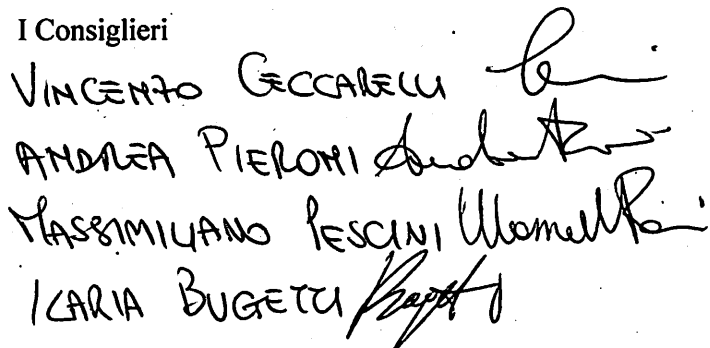 I Consiglieri
VINCENZO CECCARELLI
ANDREA PIERONI
MASSIMILIANO PESCINI
ILARIA BUGETTI